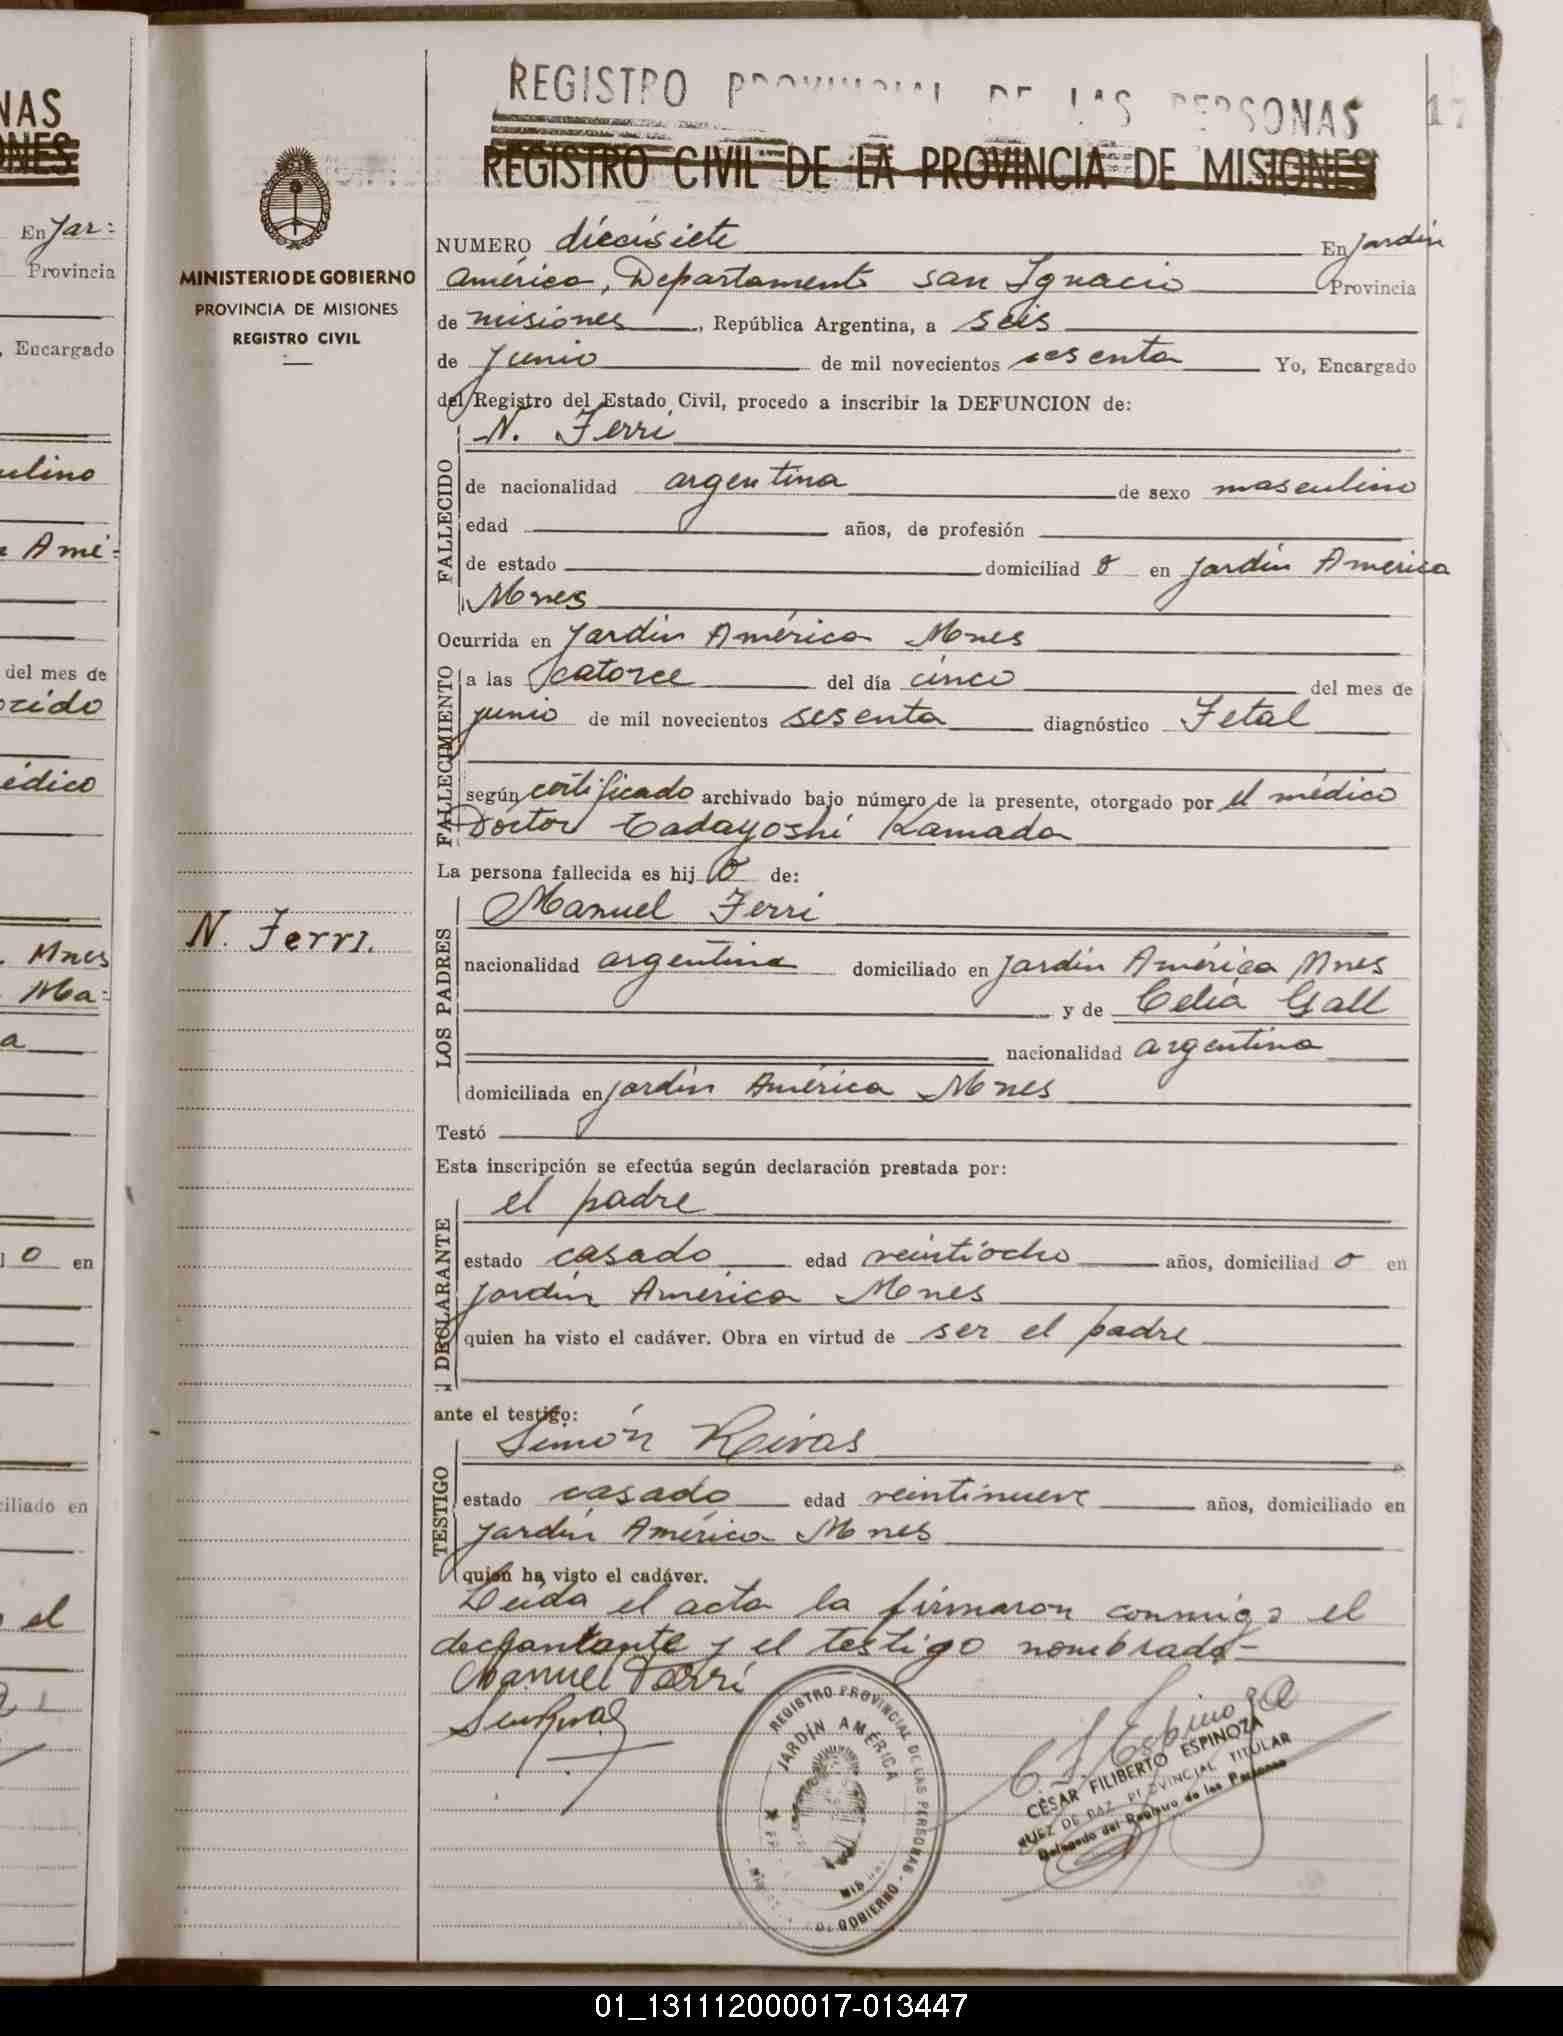 NAS
ONES
En Jar=
Provincia
, Encargado
culino
a Amé=
del mes de
ocido
édico
. Mnes
Ma=
a
o en
iliado en
el
REGISTRO PROVINCIAL DE LAS PERSONAS
17
REGISTRO CIVIL DE LA PROVINCIA DE MISIONES
MINISTERIO DE GOBIERNO
PROVINCIA DE MISIONES
REGISTRO CIVIL
N. Ferri.
NUMERO diecisiete En Jardín
América, Departamento San Ignacio Provincia
de misiones, República Argentina, a seis
de junio de mil novecientos sesenta Yo, Encargado
del Registro del Estado Civil, procedo a inscribir la DEFUNCION de:
N. Ferri
FALLECIDO
de nacionalidad argentina de sexo masculino
edad años, de profesión
de estado domiciliad o en Jardín América
Mnes
Ocurrida en Jardín América Mnes
FALLECIMIENTO
a las catorce del día cinco del mes de
junio de mil novecientos sesenta diagnóstico Fetal
según certificado archivado bajo número de la presente, otorgado por el médico
Doctor Tadayoshi Kamada
La persona fallecida es hij o de:
Manuel Ferri
LOS PADRES
nacionalidad argentina domiciliado en Jardín América Mnes
y de Celia Gall
nacionalidad argentina
domiciliada en Jardín América Mnes
Testó
Esta inscripción se efectúa según declaración prestada por:
el padre
DECLARANTE
estado casado edad veintiocho años, domiciliad o en
Jardín América Mnes
quien ha visto el cadáver. Obra en virtud de ser el padre
ante el testigo:
Simón Rivas
TESTIGO
estado casado edad veintinueve años, domiciliado en
Jardín América Mnes
quien ha visto el cadáver.
Leída el acta la firmaron conmigo el
declarante y el testigo nombrado-
Manuel Ferri
REGISTRO PROVINCIAL DE LAS PERSONAS
JARDÍN AMÉRICA
GOBIERNO
C. F. Espinoza
CÉSAR FILIBERTO ESPINOZA
JUEZ DE PAZ PROVINCIAL TITULAR
Delegado del Registro de las Personas
01_131112000017-013447